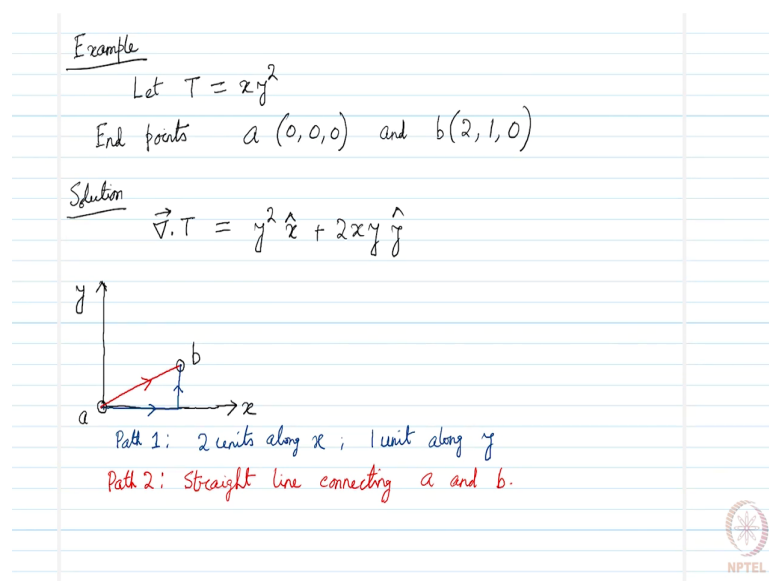 Example
Let T = xy²
End points a (0,0,0) and b(2,1,0)
Solution
∇⃗.T = y² x̂ + 2xy ŷ
y
b
a
x
Path 1: 2 units along x ; 1 unit along y
Path 2: Straight line connecting a and b.
NPTEL